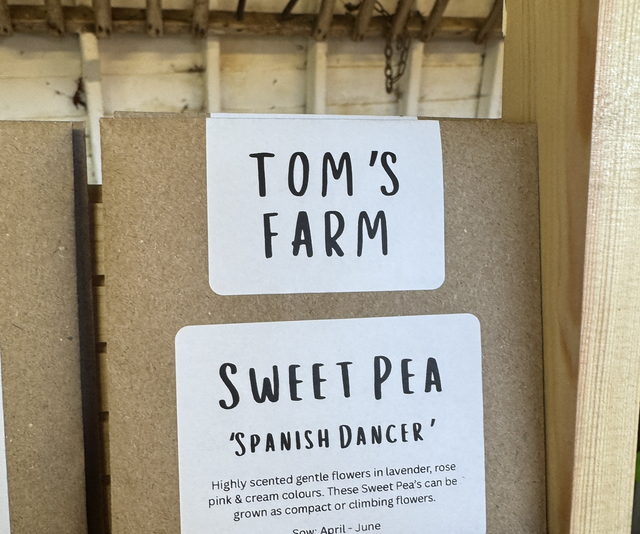 TOM'S
FARM
SWEET PEA
'SPANISH DANCER'
Highly scented gentle flowers in lavender, rose
pink & cream colours. These Sweet Pea's can be
grown as compact or climbing flowers.
Sow: April - June